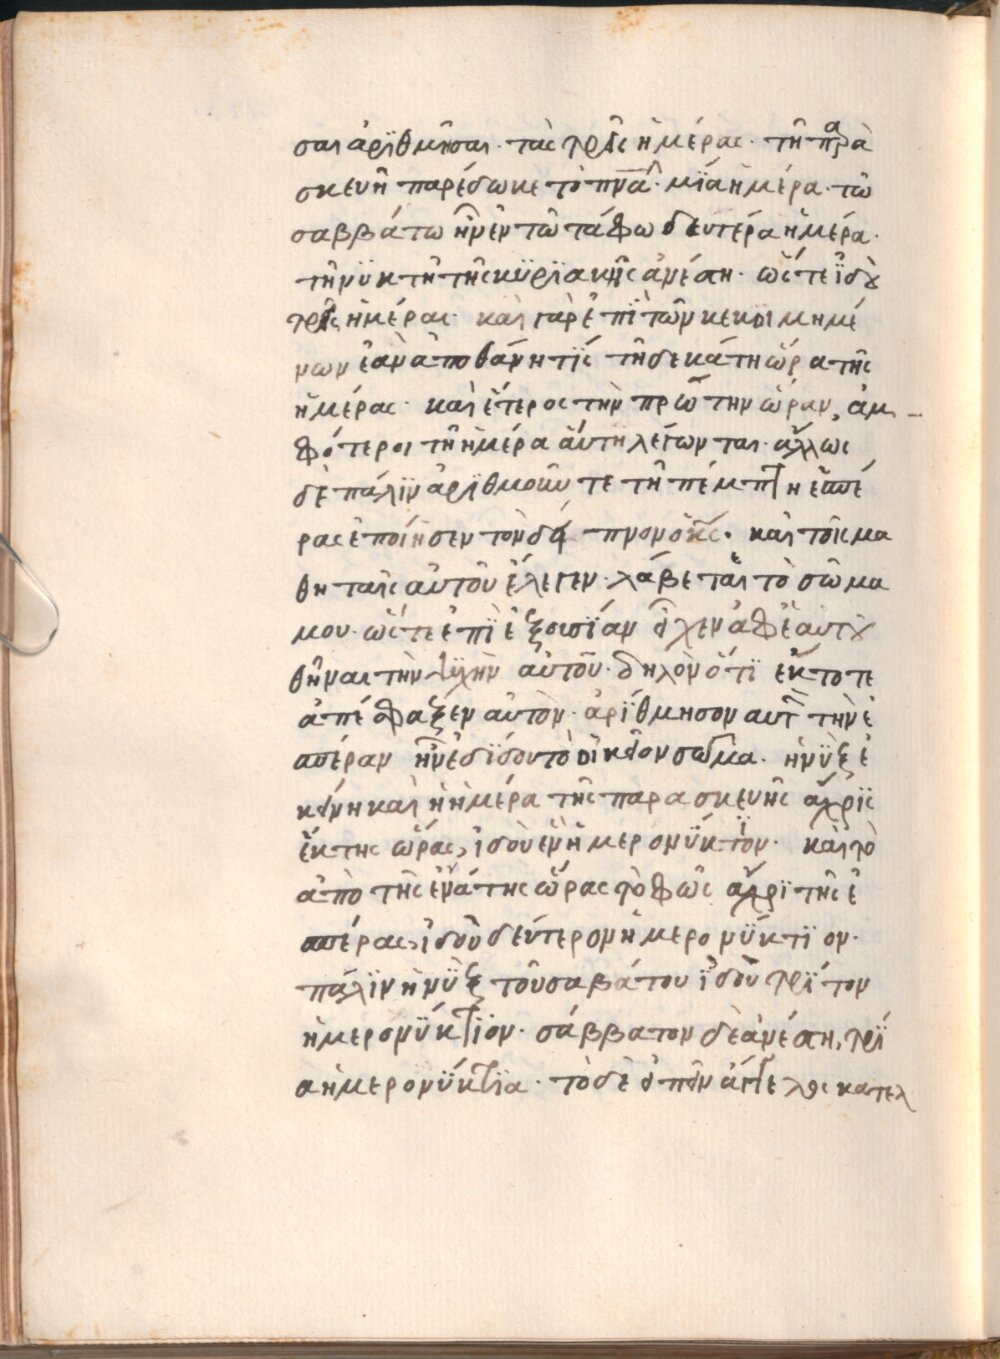 σαι ἀρϊθμῆσαι· τὰς τρεῖς ἡμέρας· τῆ παρὰ
σκευῆ παρέδωκε τὸ πν̅α· μΐα ἡμέρα· τῶ
σαββάτω ἦν ἐν τῶ τάφω δευτέρα ἡμέρα·
τῆ νϋκτὴ τῆς κϋρϊακῆς ἀνέστη· ὥστε ϊ̓δοὺ
τρεῖς ἡμέραι· καὶ γὰρ ἐπῒ τῶν κεκοιμημέ
νων ἐὰν ἀποθάνη τῒς τῆ δεκάτη ὥρα τῆς
ἡμέρας· καὶ ἕτερος τὴν πρώτην ὥραν, ἀμ-
φότεροι τῆ ἡμέρα αὐτῆ λέγωνται· ἄλλως
δὲ πάλϊν ἀρϊθμοῦν τε τῆ πέμπτη ἑσπέ
ρας ἐποίησεν τὸν δεῖπνον ὁ κς̅· καὶ τοῖς μα
θηταῖς αὐτοῦ ἔλεγεν· λάβεται τὸ σῶμα
μου· ὥστε ἐπῒ ἐξουσΐαν εἶχεν ἀφ ἑαυτοῦ
θῆναι τὴν ψϋχὴν αὐτοῦ· δηλὸν ὅτϊ ἔκτοτε
ἀπέσφαξεν αὐτὸν· ἀρΐθμησον αὐτ τὴν ἑ
σπέραν ἣν ἐδΐδου τὸ οἰκεῖον σῶμα· ἡ νῢξ ἐ
κείνη καὶ ἡ ἡμέρα τῆς παρασκευῆς ἄχρϊς
ἕκτης ὥρας, ἰδοὺ ἓν ἡμερονΰκτϊον· καὶ τὸ
ἀπὸ τῆς ἐνάτης ὥρας τὸ φῶς ἄχρϊ τῆς ἑ
σπέρας, ἰδοὺ δεύτερον ἡμερονΰκτϊον·
πάλϊν ἡ νῢξ τοῦ σαβάτου ϊ̓δοῦ τρΐτον
ἡμερονΰκτϊον· σάββατον δὲ ἀνέστη, τρΐ
α ἡμερονΰκτϊα· τὸ δὲ εἰπεῖν ἄγγελος κατελ